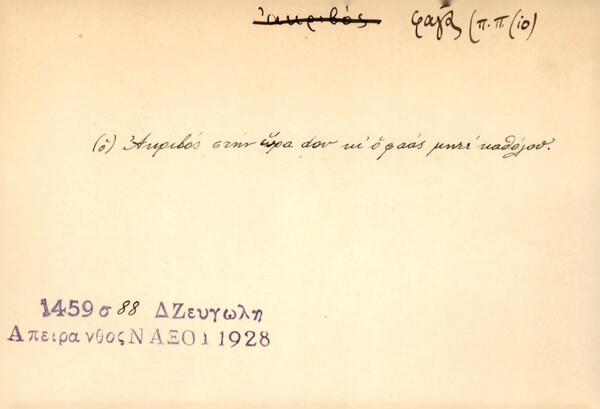 ἀκριβός φαγᾶς (π.π. (ιο)
(ὁ) Ἀκριβός στήν ὥρα dου κι' ὁ φαάς μητέ καθόλου.
1459 σ 88 ΔΖευγωλη
Απειρανθος ΝΑΞΟΙ 1928